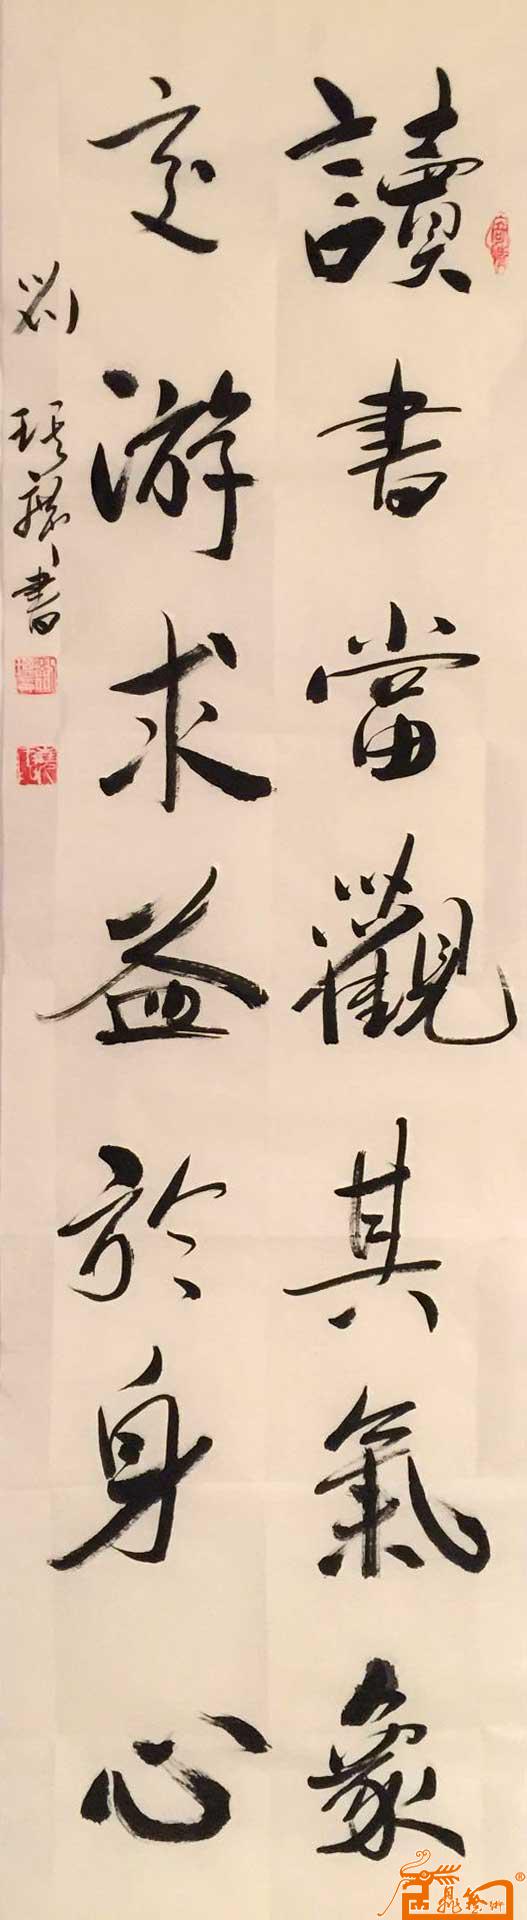 讀書當觀其氣象
交游求益於身心
劉
書